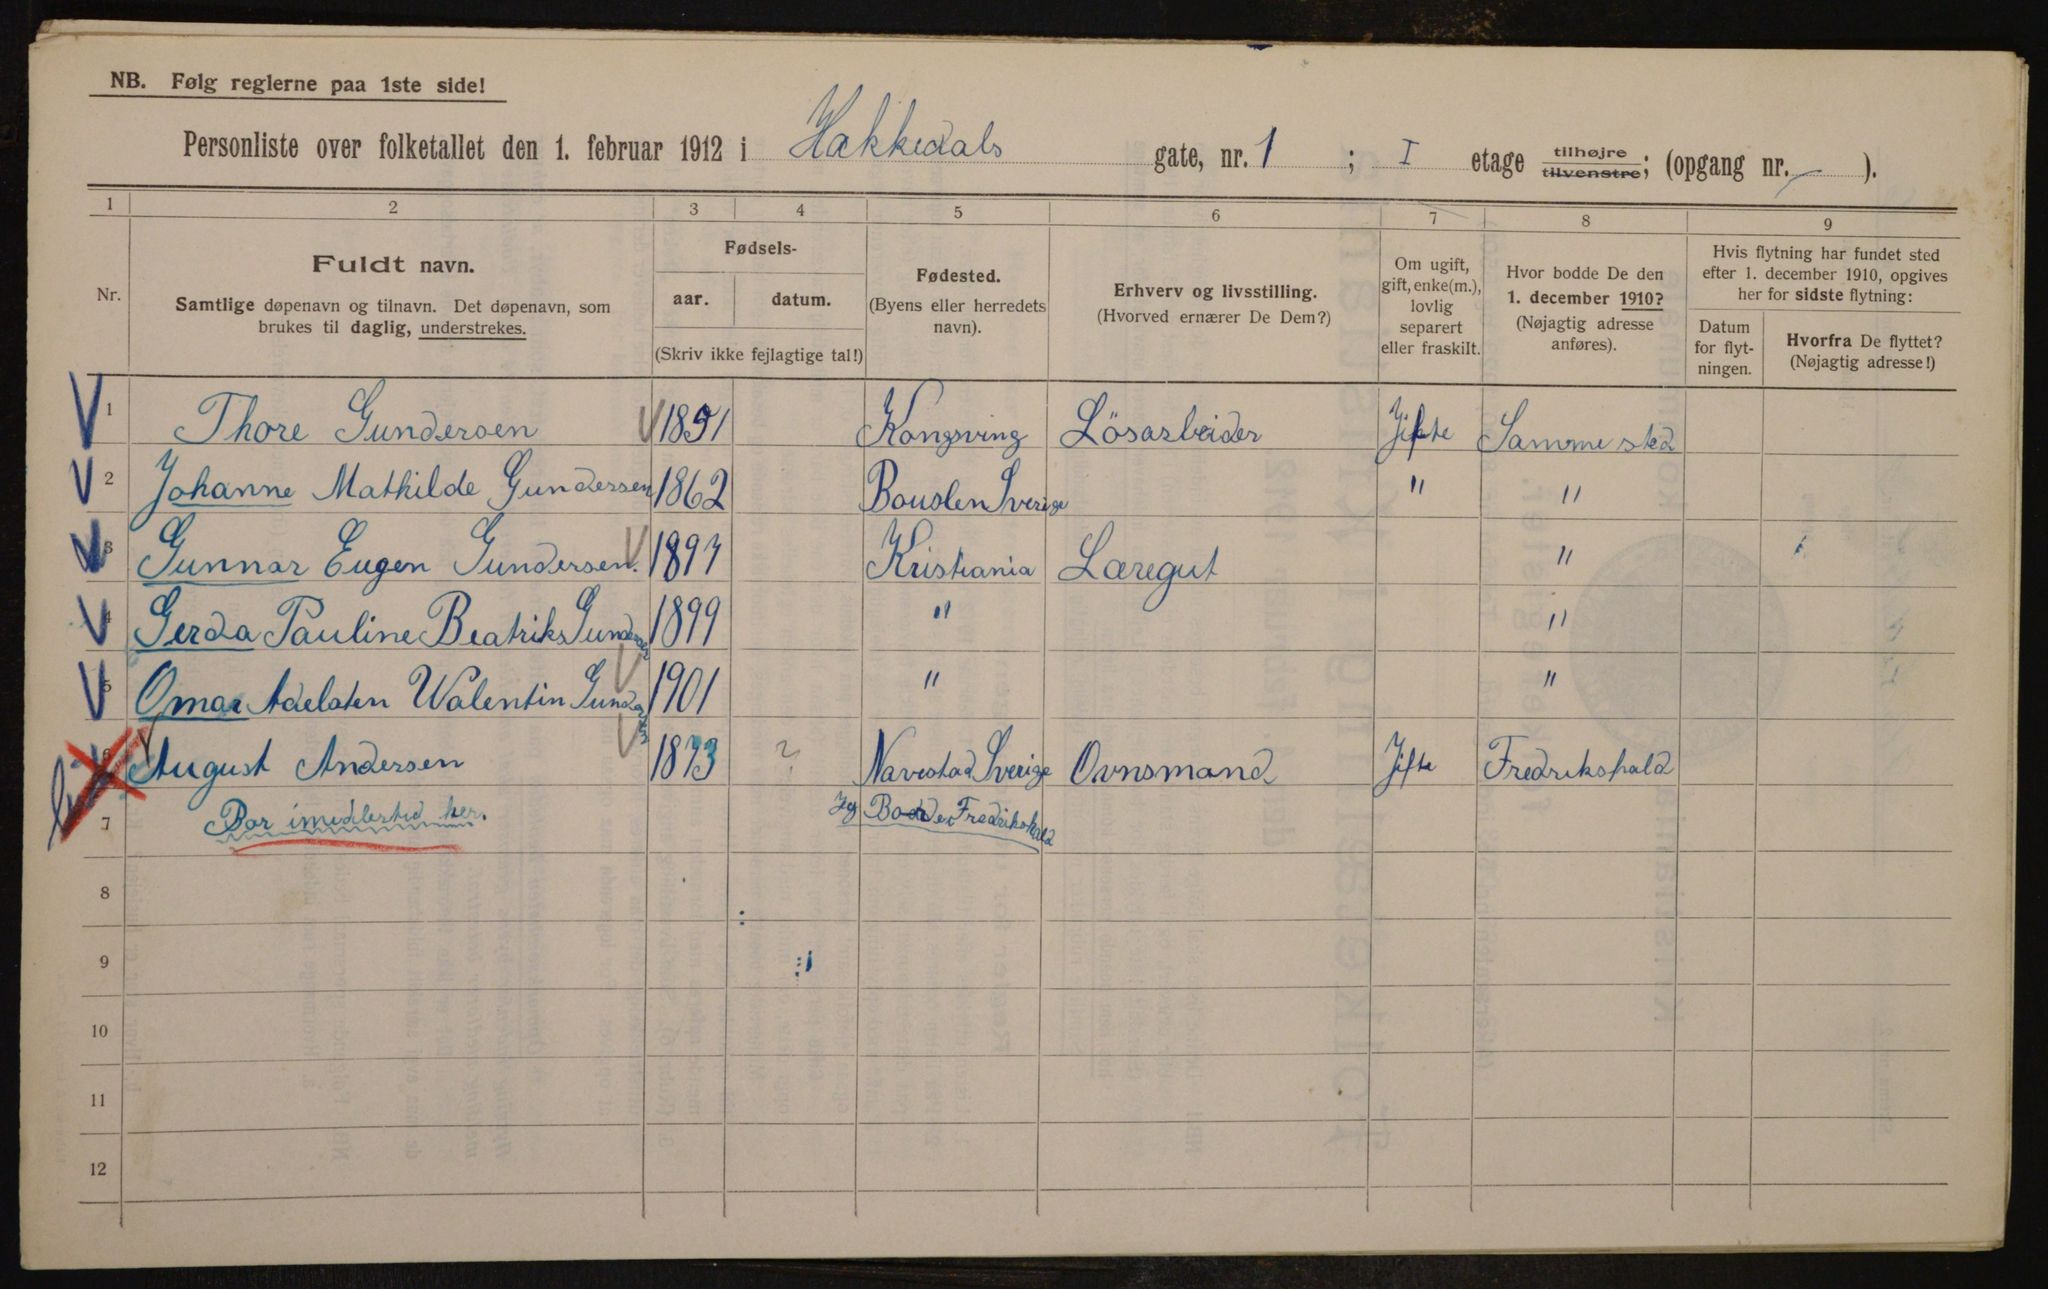 NB. Følg reglerne paa 1ste side!
Personliste over folketallet den 1. februar 1912 i Hakkedals gate, nr. 1 ; I etage tilhøjre tilvenstre; (opgang nr. — ).
1 2 3 4 5 6 7 8 9
Nr.
Fuldt navn.
Samtlige døpenavn og tilnavn. Det døpenavn, som
brukes til daglig, understrekes.
Fødsels-
aar. datum.
(Skriv ikke fejlagtige tal!)
Fødested.
(Byens eller herredets
navn).
Erhverv og livsstilling.
(Hvorved ernærer De Dem?)
Om ugift,
gift, enke(m.),
lovlig
separert
eller fraskilt.
Hvor bodde De den
1. december 1910?
(Nøjagtig adresse
anføres).
Hvis flytning har fundet sted
efter 1. december 1910, opgives
her for sidste flytning:
Datum
for flyt-
ningen.
Hvorfra De flyttet?
(Nøjagtig adresse!)
1 Thore Gundersen 1851 Kongsving Lösarbeider Gifte Samme sted
2 Johanne Mathilde Gundersen 1862 Bouslen Sverige " "
3 Gunnar Eugen Gundersen. 1897 Kristiania Læregut "
4 Gerda Pauline Beatriks Gundersen 1899 " "
5 Omar Adelsten Walentin Gundersen 1901 " "
6 August Andersen 1873 ? Navestad Sverige Ovnsmand Gifte Fredrikshald
7 Bor imidlertid her. Jeg Boede Fredrikshald
8
9
10
11
12